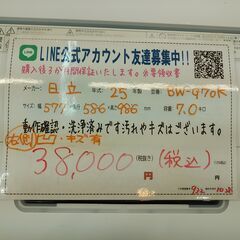 LINE公式アカウント友達募集中!!
購入後3か月間保証いたします。※要領収書
メーカー 日立 年式 25年 型番 BW-G70K
サイズ 577×586×986mm 容量 7.0キロ
動作確認・洗浄済みです汚れやキズはございます。
右側 キズ有
38,000円(税抜き) (税込)円